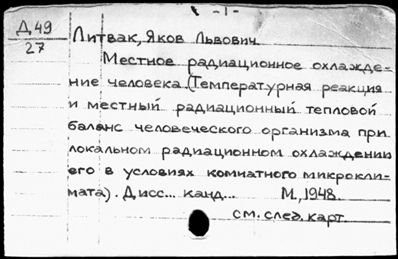 - 1 -
Д 49
27
Литвак, Яков Львович.
Местное радиационное охлажде-
ние человека. (Температурная реакция
и местный радиационный тепловой
баланс человеческого организма при
локальном радиационном охлаждении
его в условиях комнатного микрокли-
мата). Дисс... канд... М., 1948.
см. след. карт.